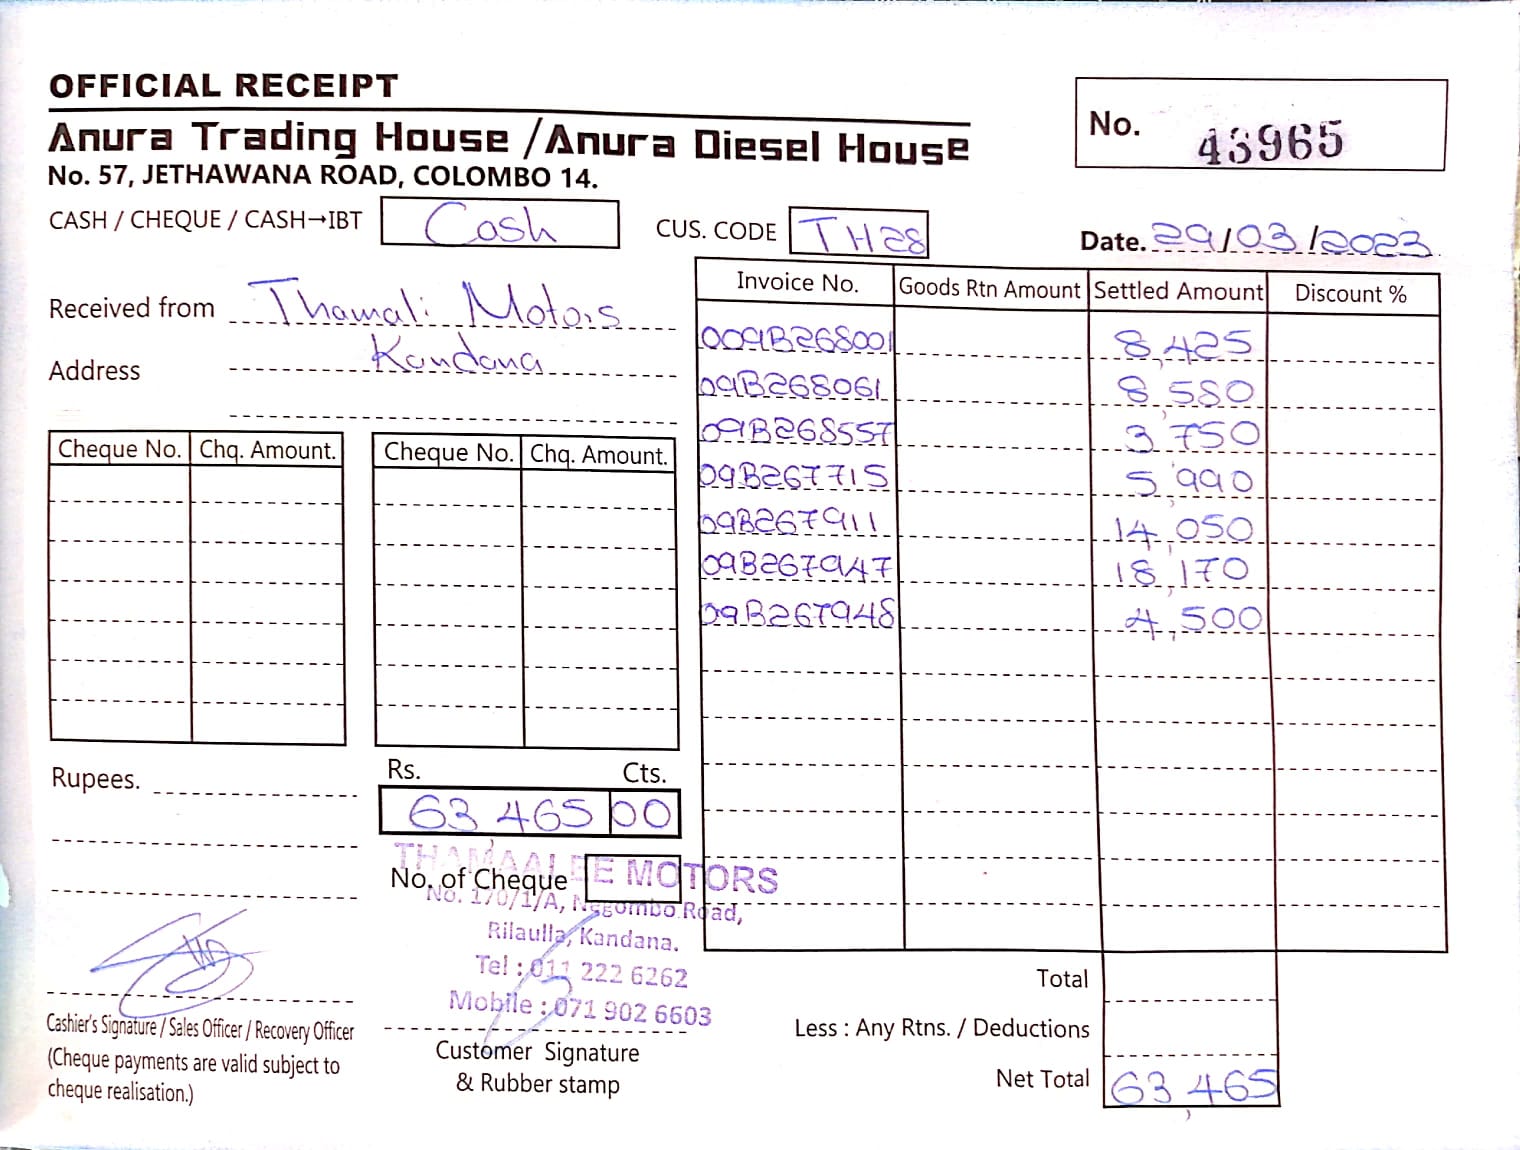 OFFICIAL RECEIPT
Anura Trading House / Anura Diesel House
No. 57, JETHAWANA ROAD, COLOMBO 14.
No. 43965
CASH / CHEQUE / CASH→IBT Cash
CUS. CODE TH28
Date. 29/03/2023
Received from Thamali Motors
Address Kandana
Invoice No. Goods Rtn Amount Settled Amount Discount %
009B268001 8,425
09B268061 8,580
09B268557 3,750
09B267715 5,990
09B267911 14,050
09B267947 18,170
09B267948 4,500
Cheque No. Chq. Amount. Cheque No. Chq. Amount.
Rupees.
Rs. Cts.
63,465 00
No. of Cheque
THAMAALEE MOTORS
No. 170/1/A, Negombo Road,
Rilaulla, Kandana.
Tel : 011 222 6262
Mobile : 071 902 6603
Cashier's Signature / Sales Officer / Recovery Officer
(Cheque payments are valid subject to
cheque realisation.)
Customer Signature
& Rubber stamp
Total
Less : Any Rtns. / Deductions
Net Total 63,465